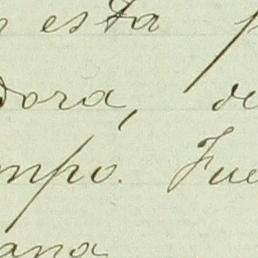 esta p
dora, de
mpo. Fue
ana